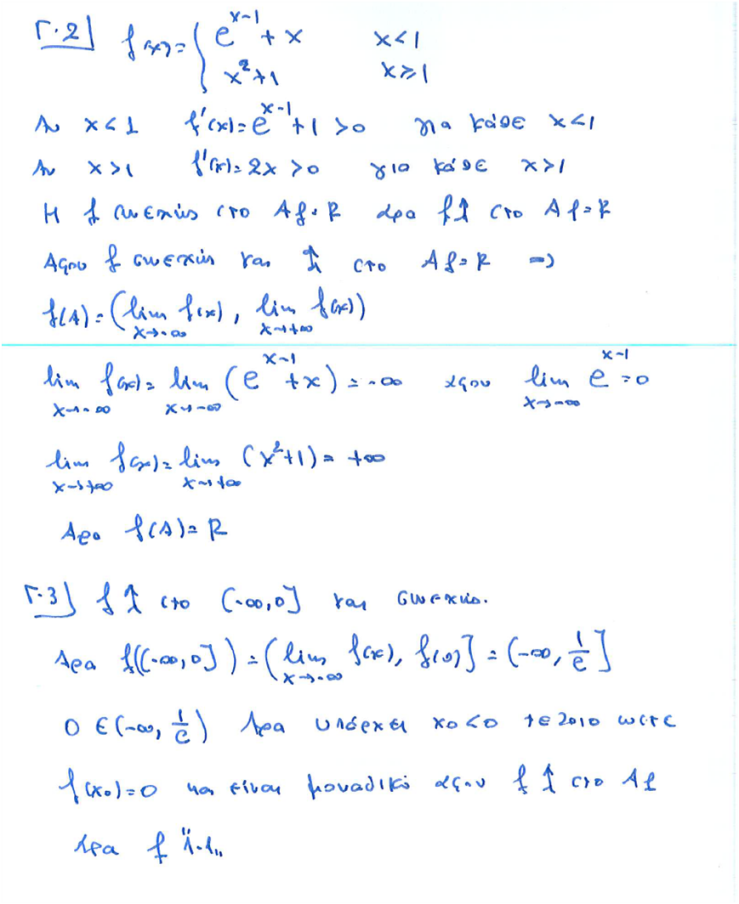 Γ.2] f(x)= { e^{x-1}+x x<1
x²+1 x≥1
Αν x<1 f'(x)=e^{x-1}+1>0 για κάθε x<1
Αν x>1 f'(x)=2x>0 για κάθε x>1
Η f συνεχής στο Af=R άρα f↑ στο Af=R
Αφού f συνεχής και ↑ στο Af=R ⇒
f(A)=(lim_{x→-∞} f(x), lim_{x→+∞} f(x))
lim_{x→-∞} f(x)=lim_{x→-∞} (e^{x-1}+x)=-∞ αφου lim_{x→-∞} e^{x-1}=0
lim_{x→+∞} f(x)=lim_{x→+∞} (x²+1)=+∞
Αρα f(A)=R
Γ.3] f↑ στο (-∞,0] και συνεχής.
Αρα f((-∞,0])=(lim_{x→-∞} f(x), f(0)]=(-∞,1/e]
0∈(-∞,1/e) Αρα υπάρχει x₀<0 τέτοιο ωστε
f(x₀)=0 και είναι μοναδικό αφου f↑ στο Af
άρα f "1-1"